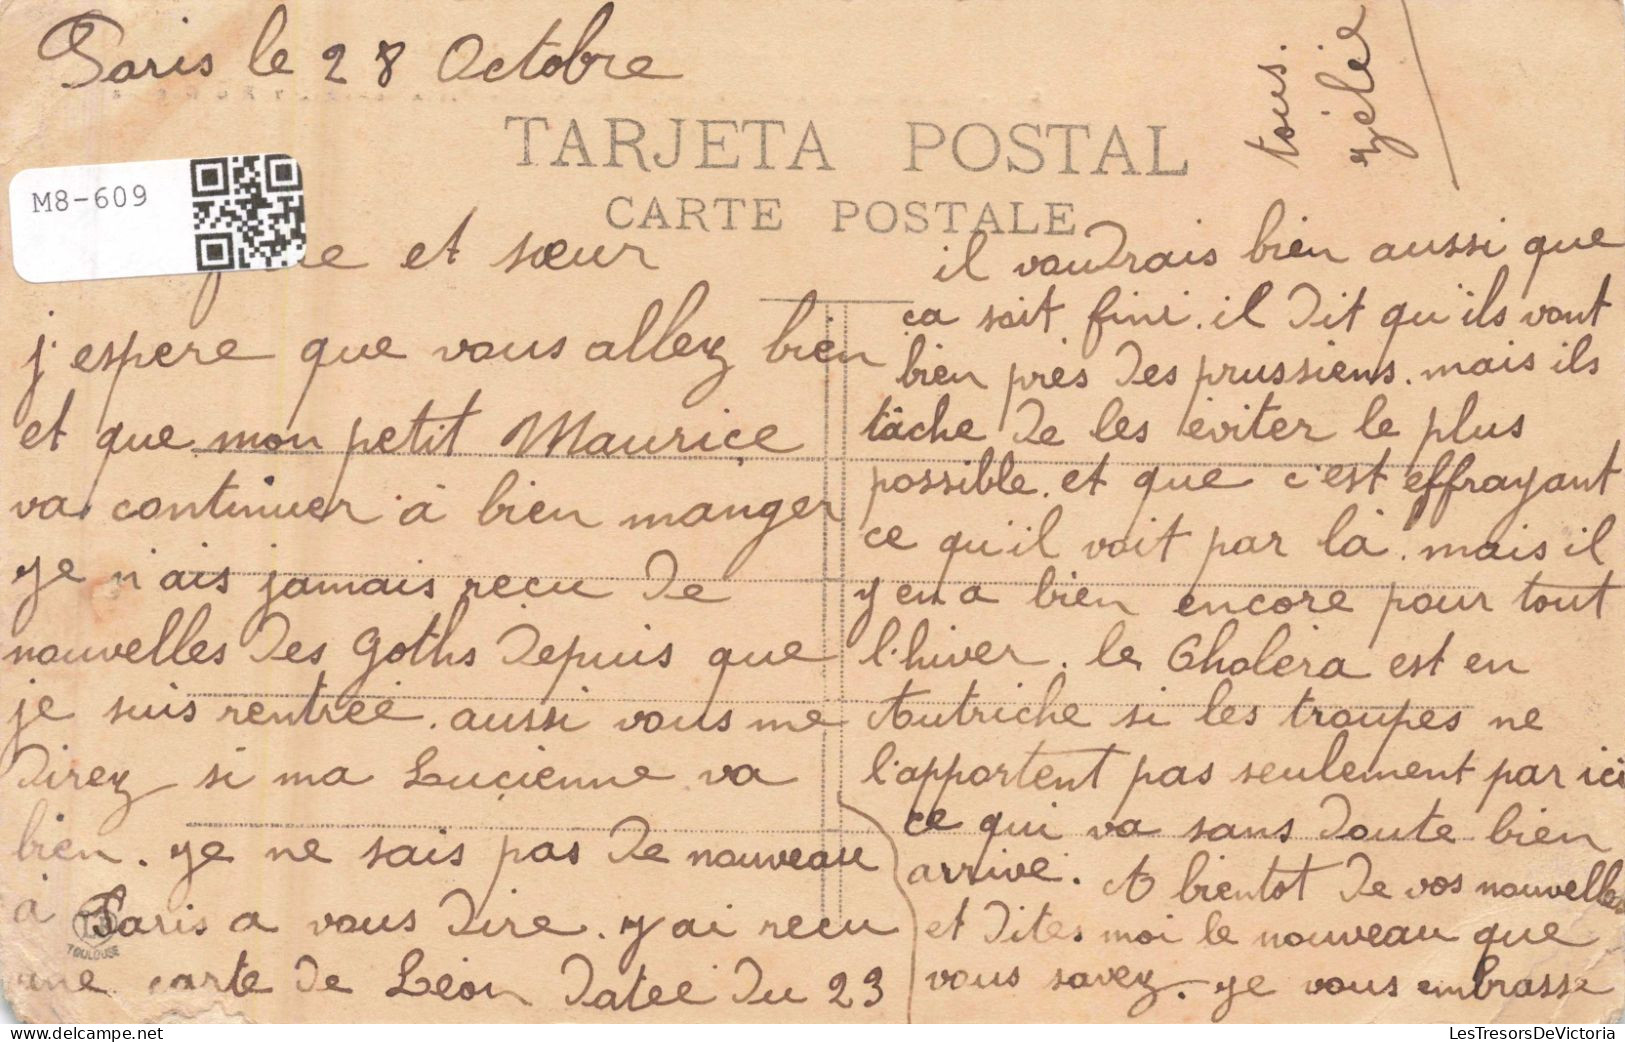 Paris le 28 Octobre
TARJETA POSTAL
CARTE POSTALE
M8-609
et sœur
j'espere que vous allez bien
et que mon petit Mauriçe
va continuer à bien manger
je n'ais jamais reçu de
nouvelles des Goths depuis que
je suis rentrée. aussi vous me
direz si ma Luçienne va
bien. je ne sais pas de nouveau
à Paris a vous dire. j'ai recu
une carte de Léon datée du 23
TOULOUSE
il voudrais bien aussi que
ça soit fini. il dit qu'ils vont
bien près des prussiens. mais ils
tâche de les éviter le plus
possible. et que c'est effrayant
ce qu'il voit par là. mais il
y en a bien encore pour tout
l'hiver. le Choléra est en
Autriche si les troupes ne
l'apportent pas seulement par ici
ce qui va sans doute bien
arrivé. A bientot de vos nouvelles
et dites moi le nouveau que
vous savez. je vous embrasse
tous.
Zélie
LesTresorsDeVictoria
delcampe.net